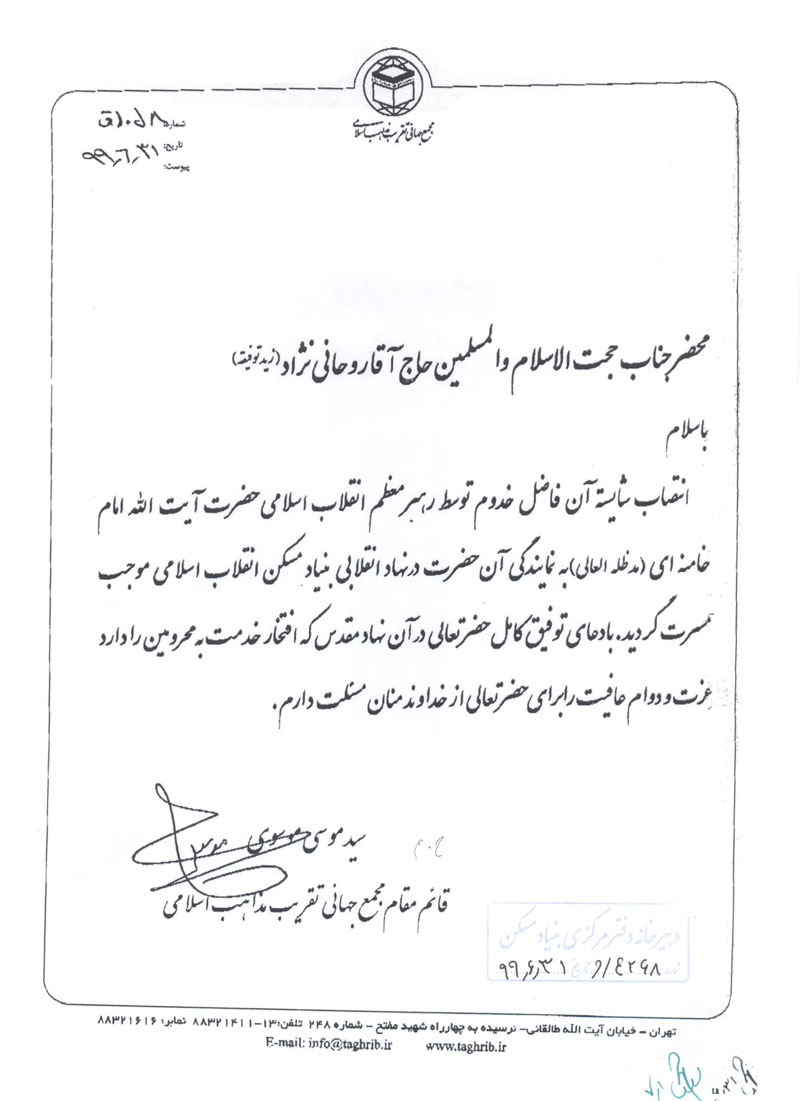 مجمع جهانی تقریب مذاهب اسلامی
شماره:
تاریخ: ۹۹٫۶٫۳۱
پیوست:
محضر جناب حجت الاسلام والمسلمین حاج آقا روحانی نژاد (زید توفیقه)
باسلام
انتصاب شایسته آن فاضل خدوم توسط رهبر معظم انقلاب اسلامی حضرت آیت الله امام
خامنه ای (مدظله العالی) به نمایندگی آن حضرت در نهاد انقلابی بنیاد مسکن انقلاب اسلامی موجب
مسرت گردید. بادعای توفیق کامل حضرتعالی در آن نهاد مقدس که افتخار خدمت به محرومین را دارد
عزت و دوام عافیت را برای حضرتعالی از خداوند منان مسئلت دارم.
سید موسی موسوی
قائم مقام مجمع جهانی تقریب مذاهب اسلامی
دبیرخانه دفتر مرکزی بنیاد مسکن
۴۲۶۸/و تاریخ ۹۹٫۶٫۳۱
تهران - خیابان آیت الله طالقانی- نرسیده به چهارراه شهید مفتح - شماره ۲۴۸ تلفن:۱۳-۸۸۳۲۱۴۱۱ نمابر: ۸۸۳۲۱۶۱۶
E-mail: info@taghrib.ir www.taghrib.ir